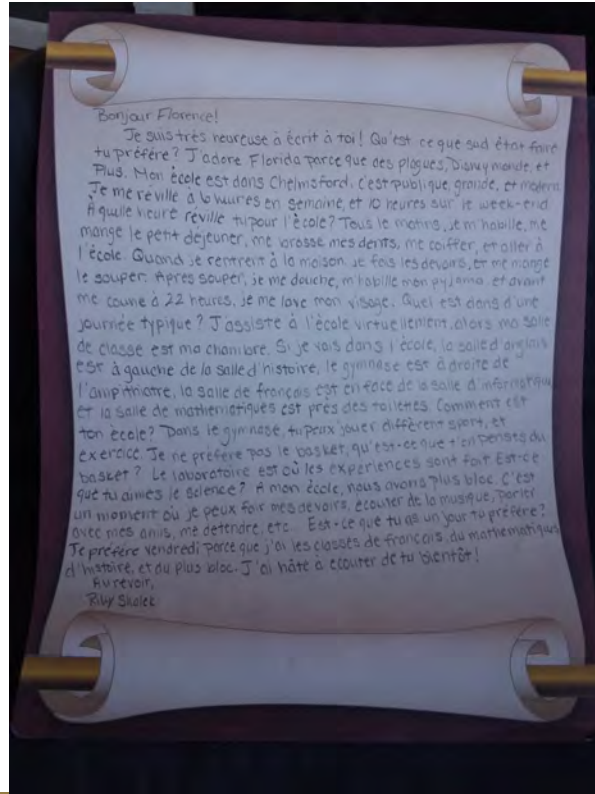 Bonjour Florence!
Je suis très heureuse à écrit à toi! Qu'est ce que sud état faire
tu préfère? J'adore Florida parce que des plages, Disney monde, et
Plus. Mon école est dans Chelmsford, c'est publique, grande, et modern.
Je me réville à 6 heures en semaine, et 10 heures sur le week-end
À quelle heure réville tu pour l'école? Tous le matins, je m'habille, me
mange le petit déjeuner, me brosse mes dents, me coiffer, et aller à
l'école. Quand je rentrent à la maison, je fais les devoirs, et me mange
le souper. Après souper, je me douche, m'habille mon pyjama, et avant
me couche à 22 heures, je me lave mon visage. Quel est dans d'une
journée typique? J'assiste à l'école virtuellement, alors ma salle
de classe est ma chambre. Si je vais dans l'école, la salle d'anglais
est à gauche de la salle d'histoire, le gymnase est à droite de
l'ampithiatre, la salle de français est en face de la salle d'informatique
et la salle de mathematiques est près des toilettes. Comment est
ton école? Dans le gymnase, tu peux jouer différent sport, et
exercice. Je ne préfère pas le basket, qu'est-ce que t'en penses du
basket? Le laboratoire est où les experiences sont fait Est-ce
que tu aimes le science? A mon école, nous avons plus bloc. C'est
un moment où je peux fair mes devoirs, écouter de la musique, parler
avec mes amis, me detendre, etc. Est-ce que tu as un jour tu préfère?
Je préfère vendredi parce que j'ai les classes de français, du mathematiques
d'histoire, et du plus bloc. J'ai hâte à ecouter de tu bientôt!
Au revoir,
Riley